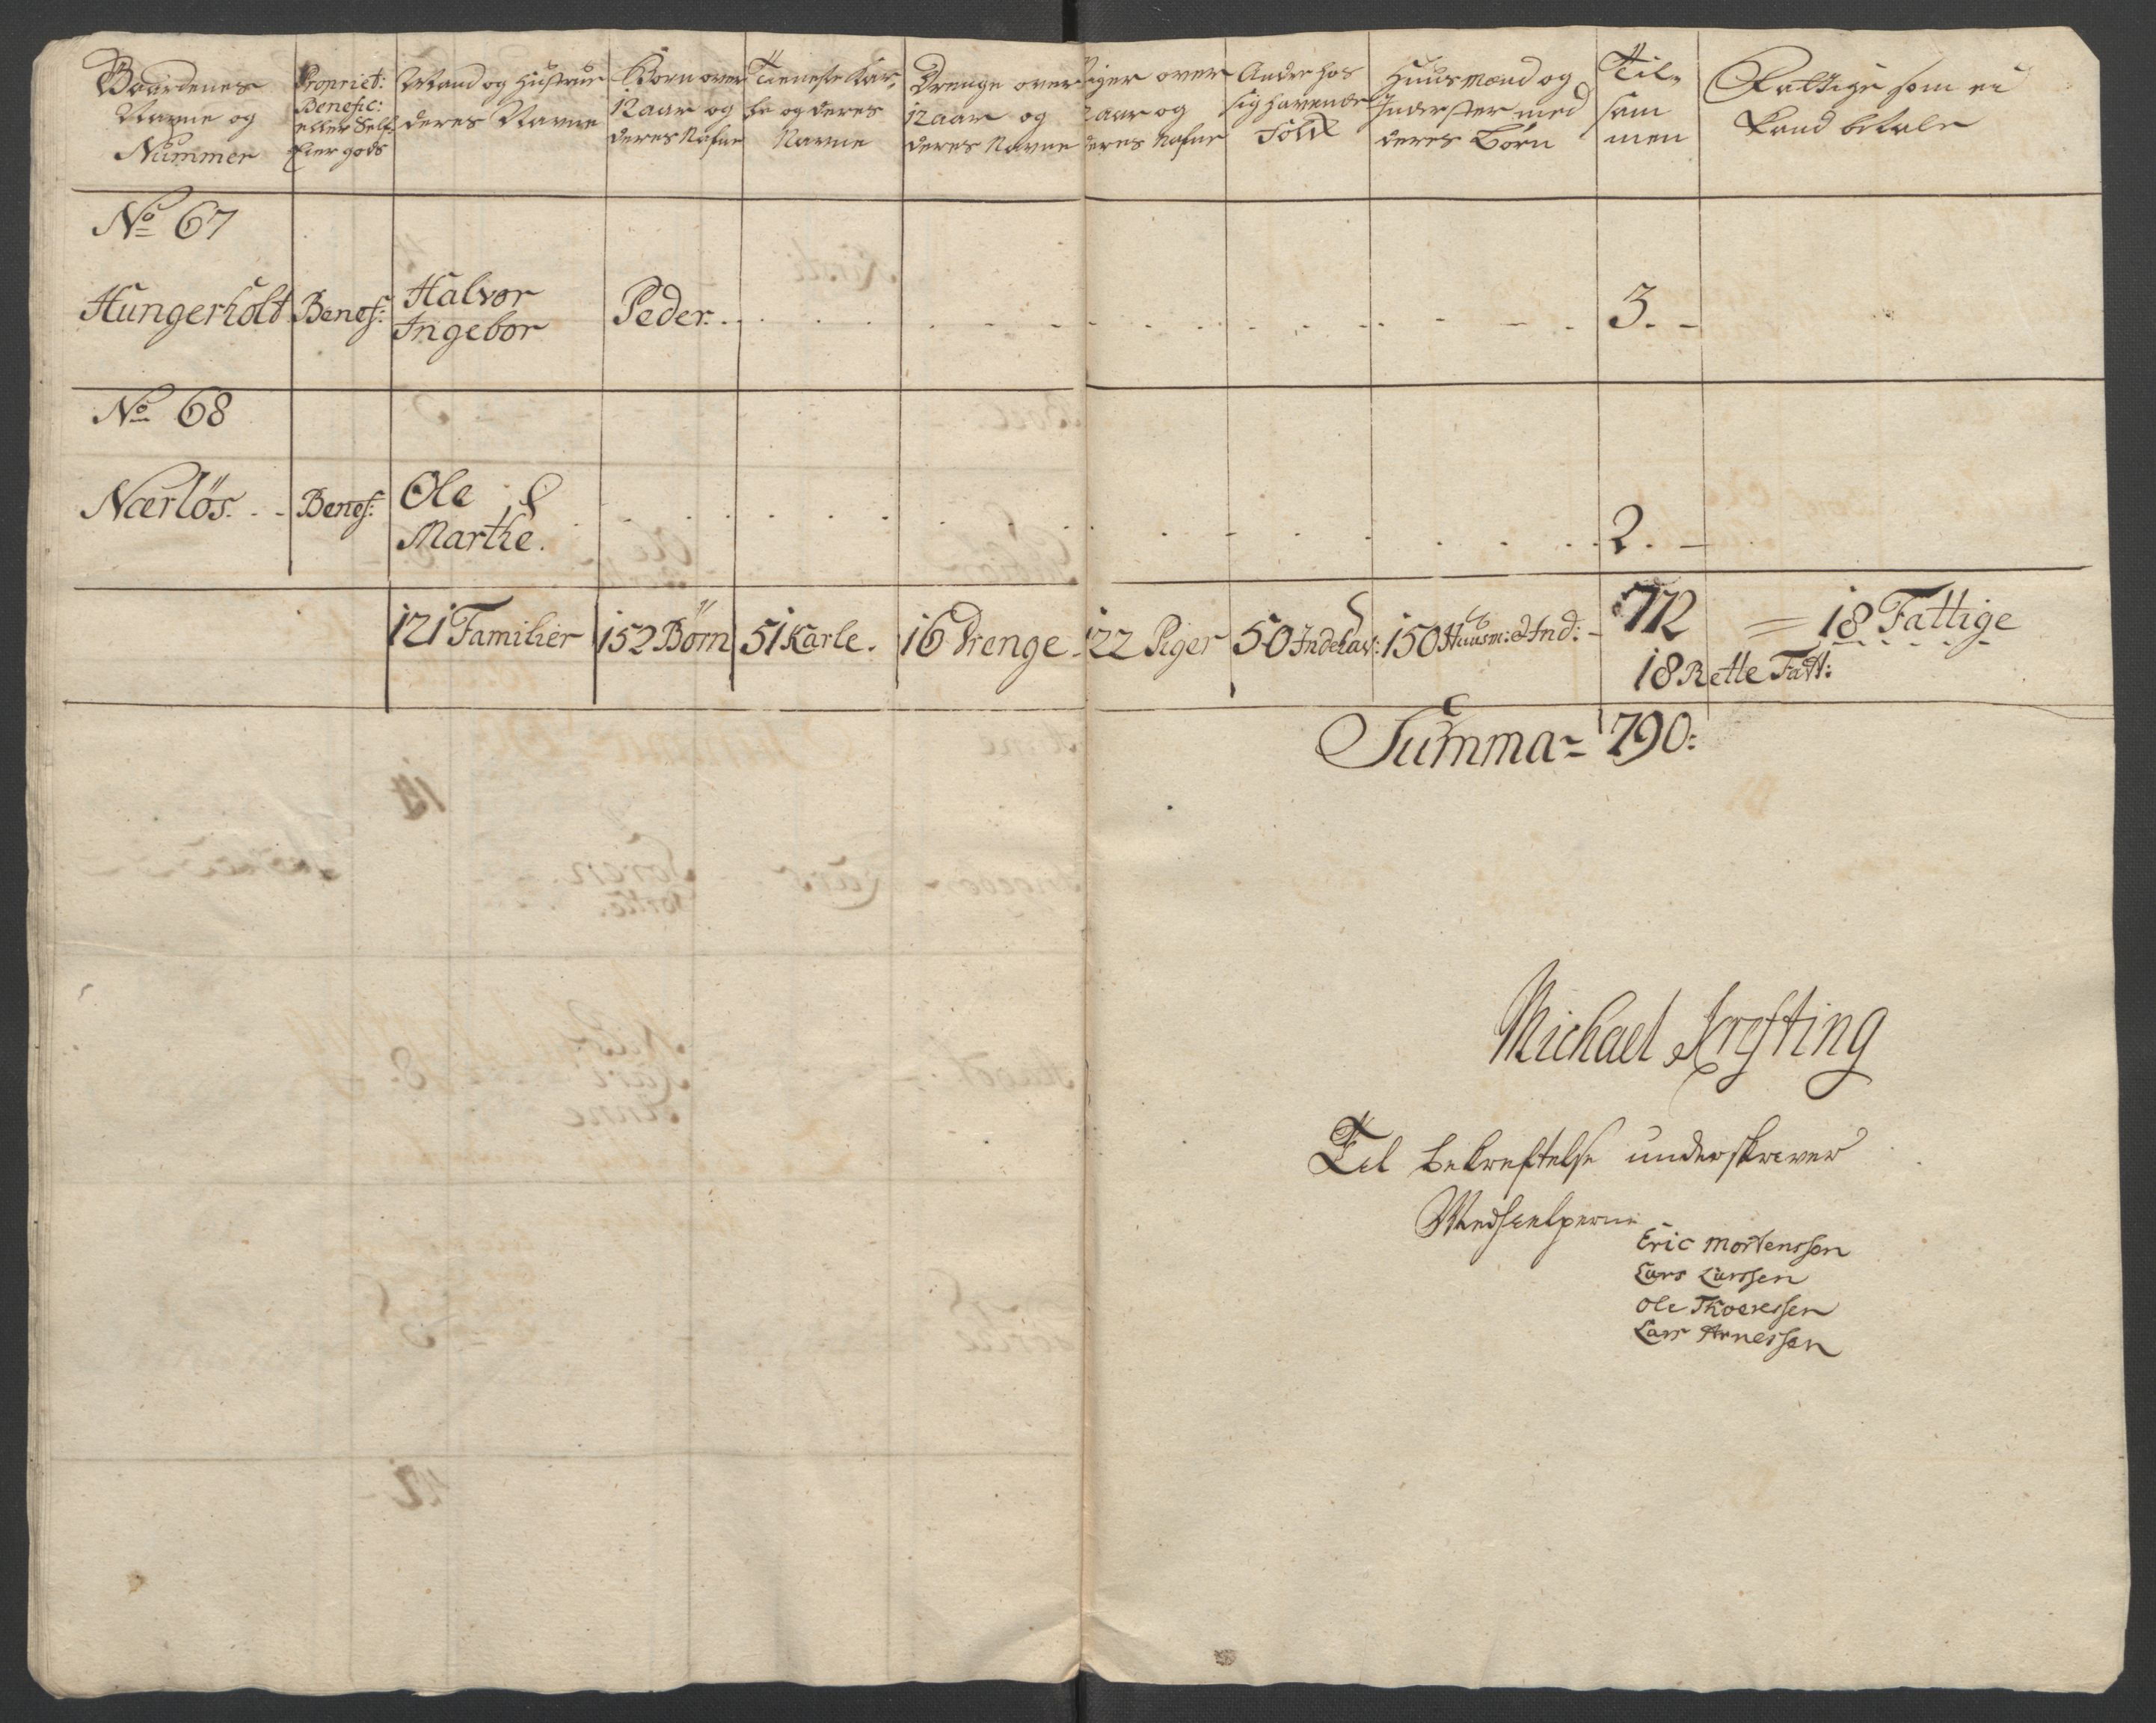 Gaardenes
Navne og
Nummer
Propriet:
Benefic:
eller Self
Eier gods
Mand og Hustrue
deres Navne
Börn over
12 aar og
deres Nafne
Tieneste Kar,
le og deres
Navne
Drenge over
12 aar og
deres Navne
Piger over
12 aar og
deres Nafne
Andre hos
sig havende
Folk
Huusmænd og
Inderster med
deres Börn
Til,
sam
men
Fattige som ei
kand betale
No 67
Hungerholt Benef: Halvor
Ingebor
Peder.
3.
No 68
Nærlös. Benef: Ole &
Marthe.
2.
121 Familier 152 Börn 51 Karle. 16 Drenge. 122 Piger 50 Inderl: 150 Huusm: & Ind: 772 = 18 Fattige
18 Rette Fatt:
Summa = 790:
Michael Krefting
Til bekreftelse underskriver
Medhielperne
Eric Mortenssen
Lars Larssen
Ole Thoeressen
Lars Arnessen